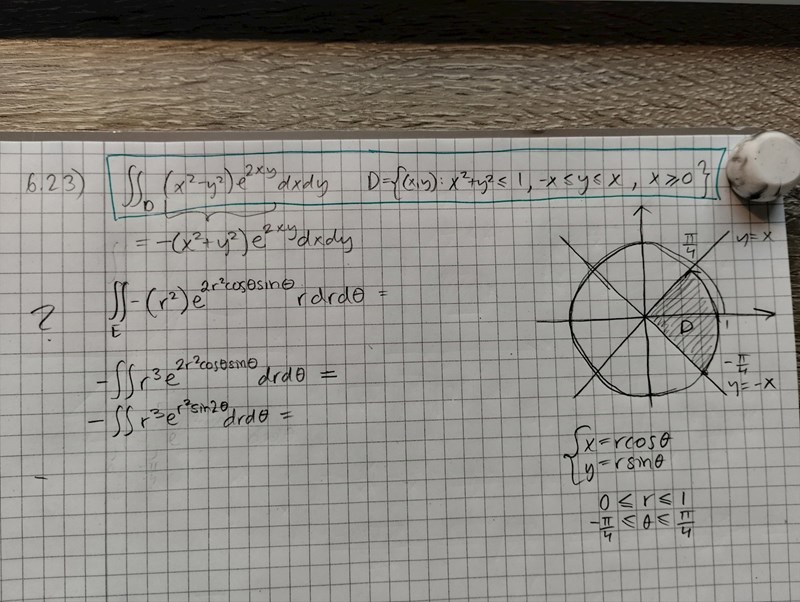 6.23) ∬_D (x²-y²)e^{2xy}dxdy D={(x,y): x²+y²≤1, -x≤y≤x, x≥0}
= -(x²+y²)e^{2xy}dxdy
? ∬_E -(r²)e^{2r²cosθsinθ} r dr dθ =
-∬r³e^{2r²cosθsinθ}drdθ =
-∬r³e^{r²sin2θ}drdθ =
-
π/4 y=x
D 1
-π/4
y=-x
{x=rcosθ
y=rsinθ
0≤r≤1
-π/4≤θ≤π/4